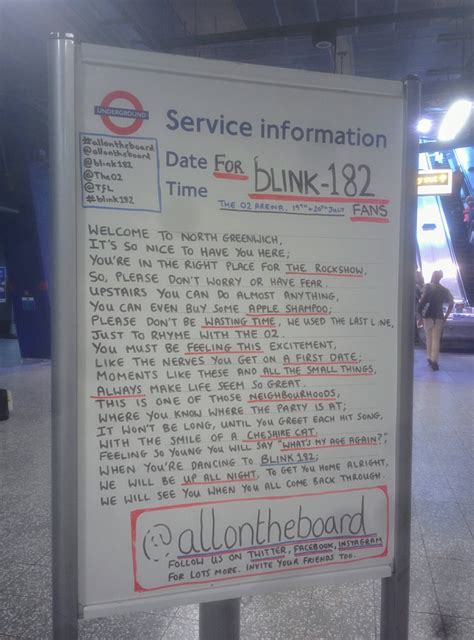 UNDERGROUND
Service information
#allontheboard
@allontheboard
@blink182
@TheO2
@TFL
#blink182
Date FOR blink-182
Time THE O2 ARENA. 19TH & 20TH JULY FANS
WELCOME TO NORTH GREENWICH,
IT'S SO NICE TO HAVE YOU HERE;
YOU'RE IN THE RIGHT PLACE FOR THE ROCKSHOW,
SO, PLEASE DON'T WORRY OR HAVE FEAR.
UPSTAIRS YOU CAN DO ALMOST ANYTHING,
YOU CAN EVEN BUY SOME APPLE SHAMPOO;
PLEASE DON'T BE WASTING TIME, WE USED THE LAST LINE,
JUST TO RHYME WITH THE O2.
YOU MUST BE FEELING THIS EXCITEMENT,
LIKE THE NERVES YOU GET ON A FIRST DATE;
MOMENTS LIKE THESE AND ALL THE SMALL THINGS,
ALWAYS MAKE LIFE SEEM SO GREAT.
THIS IS ONE OF THOSE NEIGHBOURHOODS,
WHERE YOU KNOW WHERE THE PARTY IS AT;
IT WON'T BE LONG, UNTIL YOU GREET EACH HIT SONG,
WITH THE SMILE OF A CHESHIRE CAT.
FEELING SO YOUNG YOU WILL SAY "WHAT'S MY AGE AGAIN?",
WHEN YOU'RE DANCING TO BLINK 182;
WE WILL BE UP ALL NIGHT, TO GET YOU HOME ALRIGHT,
WE WILL SEE YOU WHEN YOU ALL COME BACK THROUGH.
@allontheboard
FOLLOW US ON TWITTER, FACEBOOK, INSTAGRAM
FOR LOTS MORE. INVITE YOUR FRIENDS TOO.